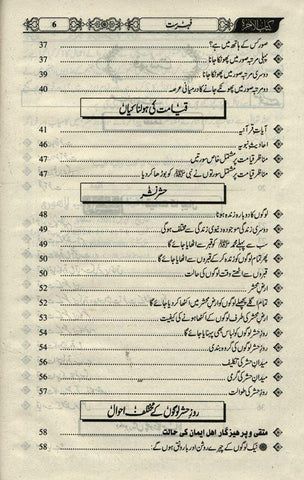 کتاب الآخرۃ فہرست 6
صور کس کے ہاتھ میں ہے؟ 37
پہلی مرتبہ صور میں پھونکا جانا 37
دوسری مرتبہ صور میں پھونکا جانا 39
دو مرتبہ صور میں پھونکے جانے کا درمیانی عرصہ 40
قیامت کی ہولناکیاں
آیات قرآنیہ 41
احادیث نبویہ 46
مناظر قیامت پر مشتمل خاص سورتیں 46
مناظر قیامت پر مشتمل سورتوں نے نبی ﷺ کو بوڑھا کر دیا 47
حشر نشر
لوگوں کا دوبارہ زندہ ہونا 48
دوسری زندگی موجودہ دنیوی زندگی سے مختلف ہوگی 49
سب سے پہلے محمد ﷺ کو قبر سے اٹھایا جائے گا 50
تمام لوگوں کو زندہ کر کے قبروں سے اٹھایا جائے گا 50
قبروں سے اٹھتے وقت لوگوں کی حالت 50
ارض محشر 52
تمام اگلے پچھلے لوگوں کو ارض محشر میں اکٹھا کر دیا جائے گا 52
ارض محشر کی طرف لوگوں کے اکٹھا ہونے کی کیفیت 53
روز حشر لوگوں کو لباس بھی پہنایا جائے گا 54
روز حشر لوگوں کی گروہ بندی 54
میدان حشر کی تکلیف 56
میدان حشر کی گرمی 56
روز حشر کی طوالت 57
روز حشر لوگوں کے مختلف احوال
متقی و پرہیزگار اہل ایمان کی حالت 58
نیک لوگوں کے چہرے روشن اور بارونق ہوں گے 58